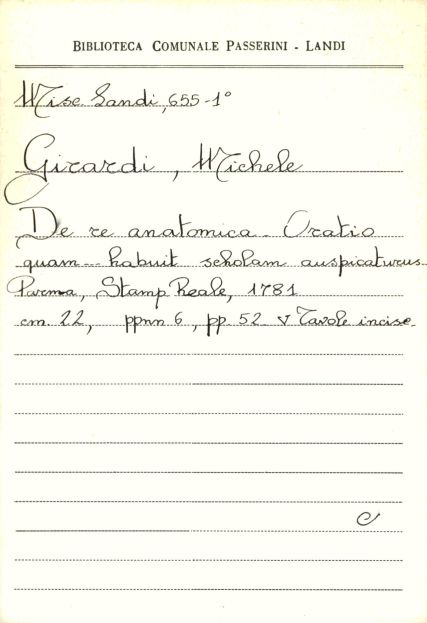 BIBLIOTECA COMUNALE PASSERINI - LANDI
Misc. Landi, 655-1°
Girardi, Michele
De re anatomica. Oratio
quam... habuit scholam auspicaturus.
Parma, Stamp. Reale, 1781
cm. 22, ppnn 6, pp. 52. V Tavole incise.